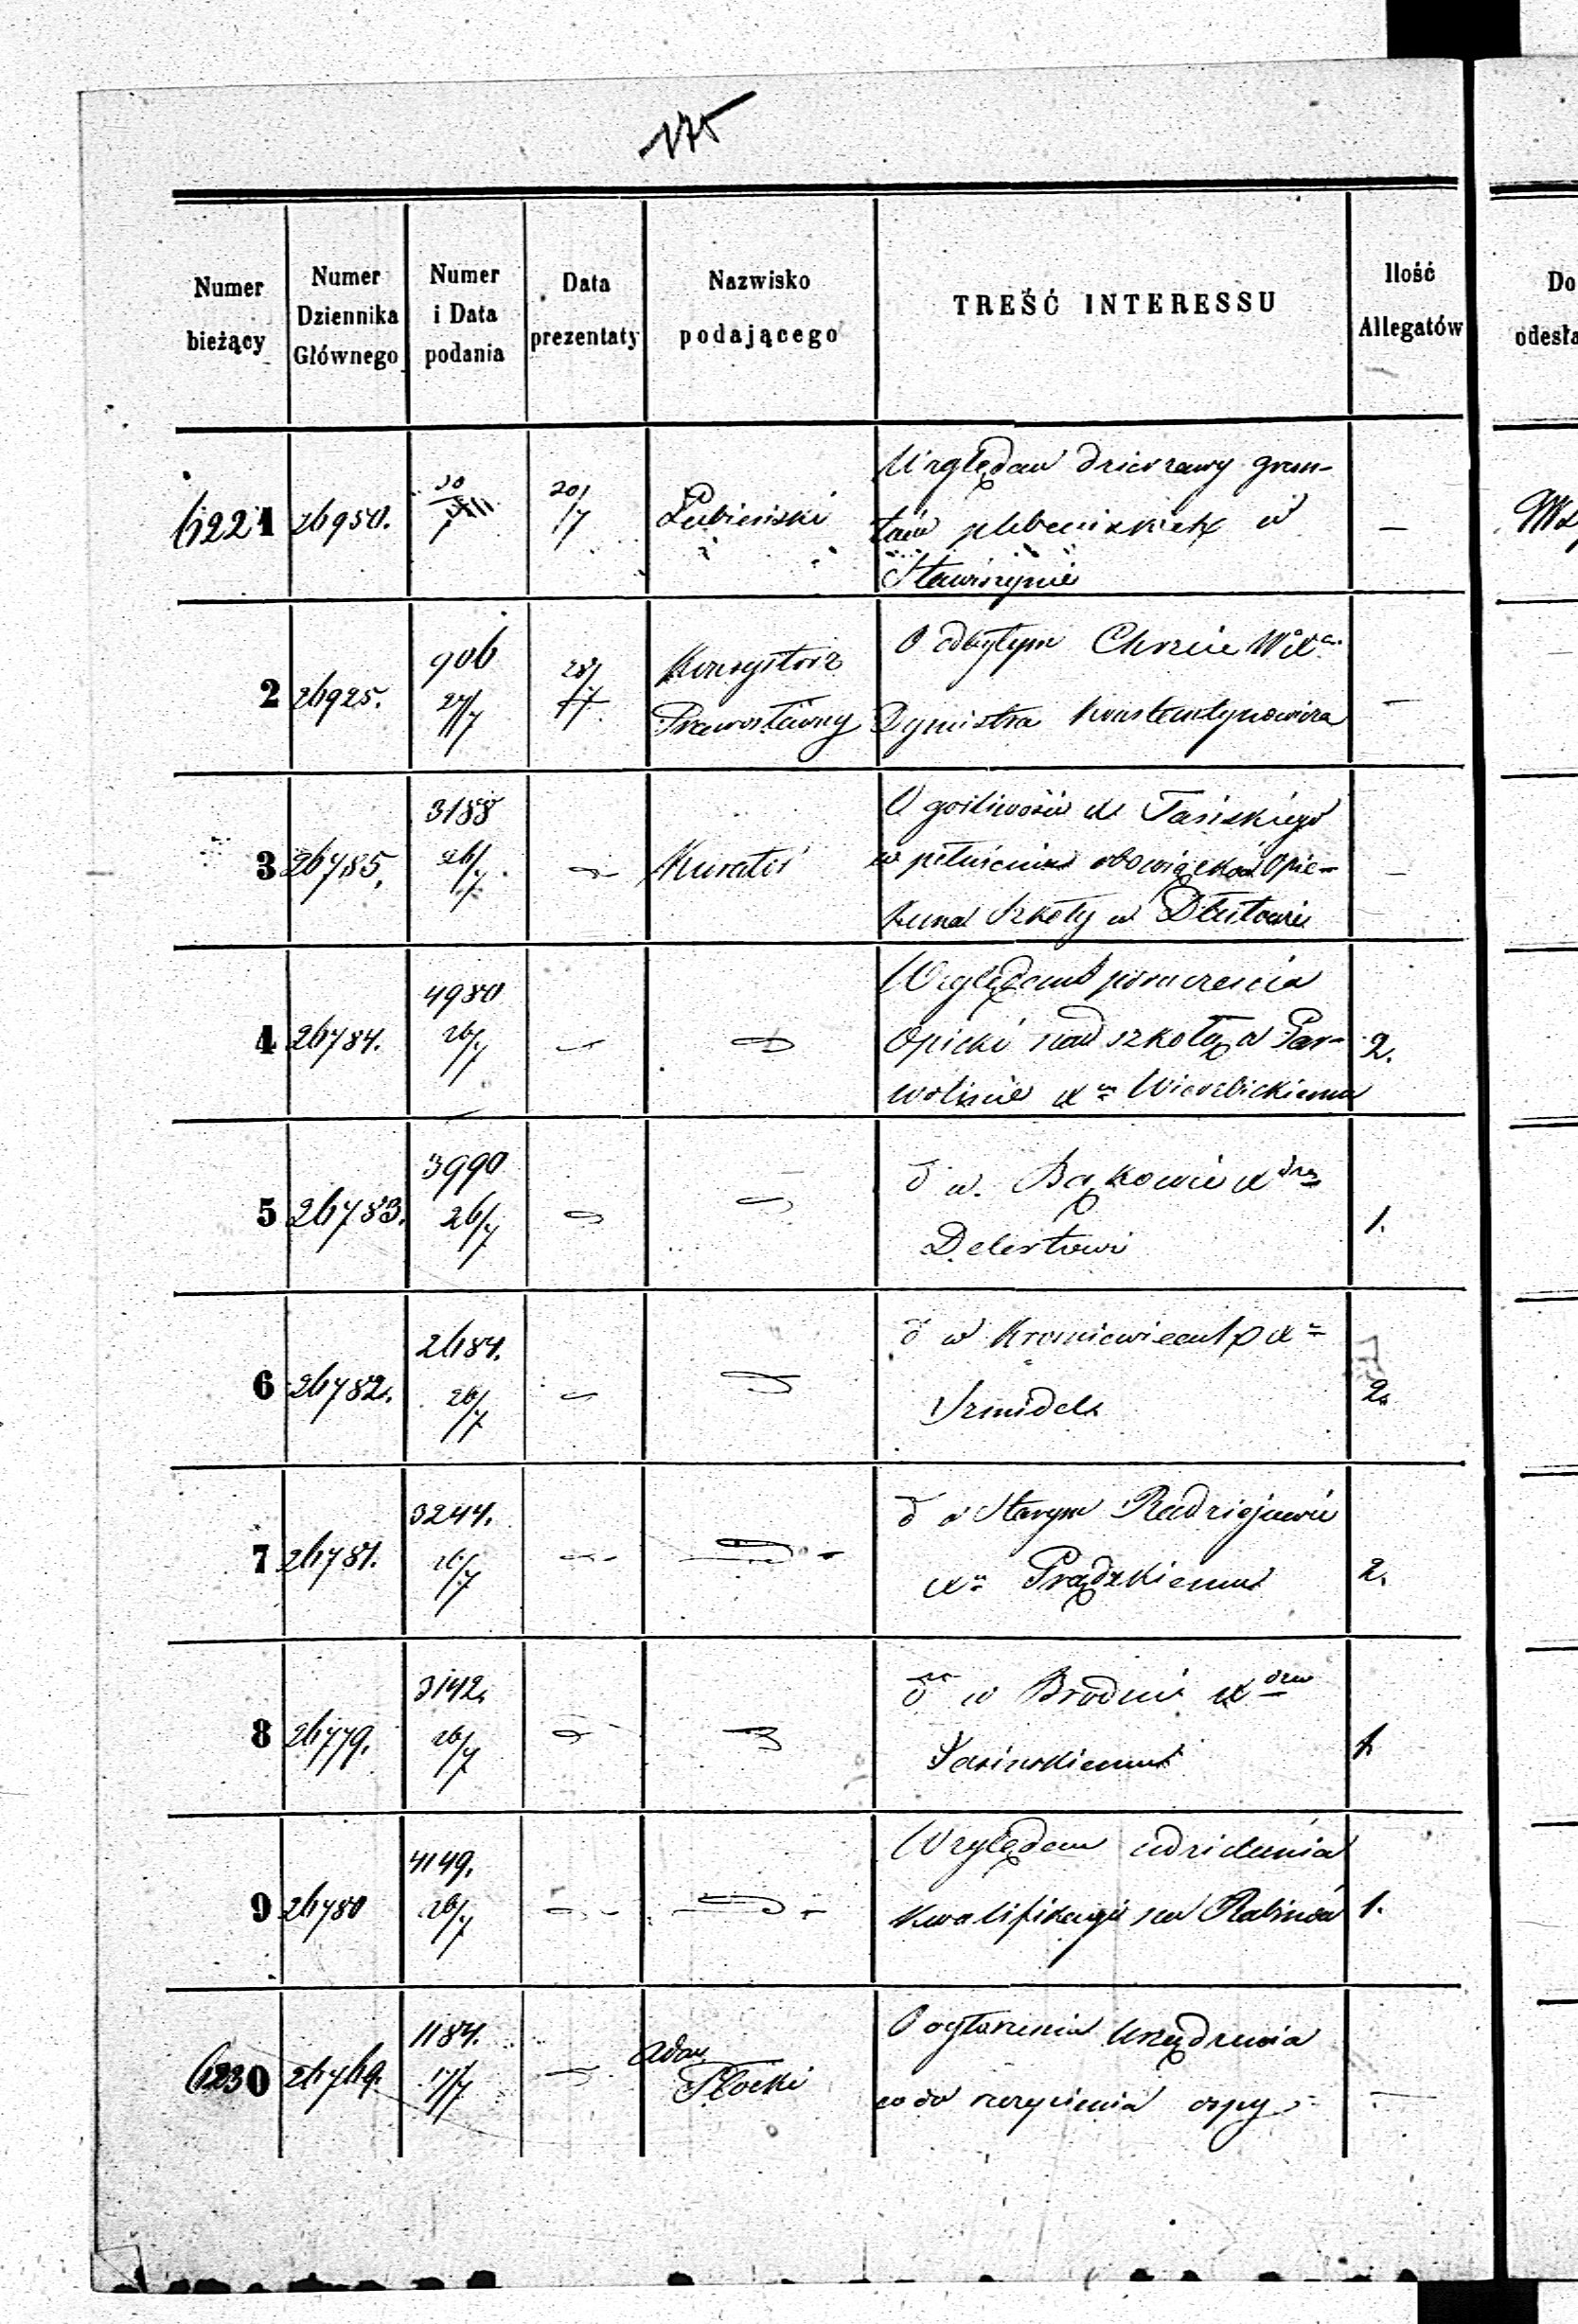 175
Numer bieżący
Numer Dziennika Głównego
Numer i Data podania
Data prezentaty
Nazwisko podającego
TREŚĆ INTERESSU
Ilość Allegatów
Do
odesła
6221 26950. 20/7 Łubieński Względem dzierzawy grun-
tów plebańskich w —
Stawiszynie
2 26925. 906 27/7 28/7 Konsystorz Prawosławny O odbytym Chrzcie
Dymistra Konstantynowicza —
3 26785. 3188 26/7 Kurator O gorliwości X Jasińskiego
w pełnieniu obowiązków Opie-
kuna Szkoły w Dłutowie —
4 26784. 4980 26/7 Względem poruczenia
Opieki nad szkołą w Par- 2.
wolinie Xu Wierzbickiemu
5 26783. 3990 26/7 d w Bąkowie Xdzu
Delertowi 1.
6 26782. 2684. 26/7 d w X
Szmidel 2.
7 26781. 3244. 26/7 d w Starym Radziejowie
Xu Prądzkiemu 2.
8 26779. 3142. 26/7 d w Brodni Xdzu
Jasińskiemu 1
9 26780 4149. 26/7 Względem udzielenia
kwalifikacyi na Rabinów 1.
6230 26769. 1184. 17/7 Płocki O ogłoszenia Urządzenia
co do szczepienia ospy —